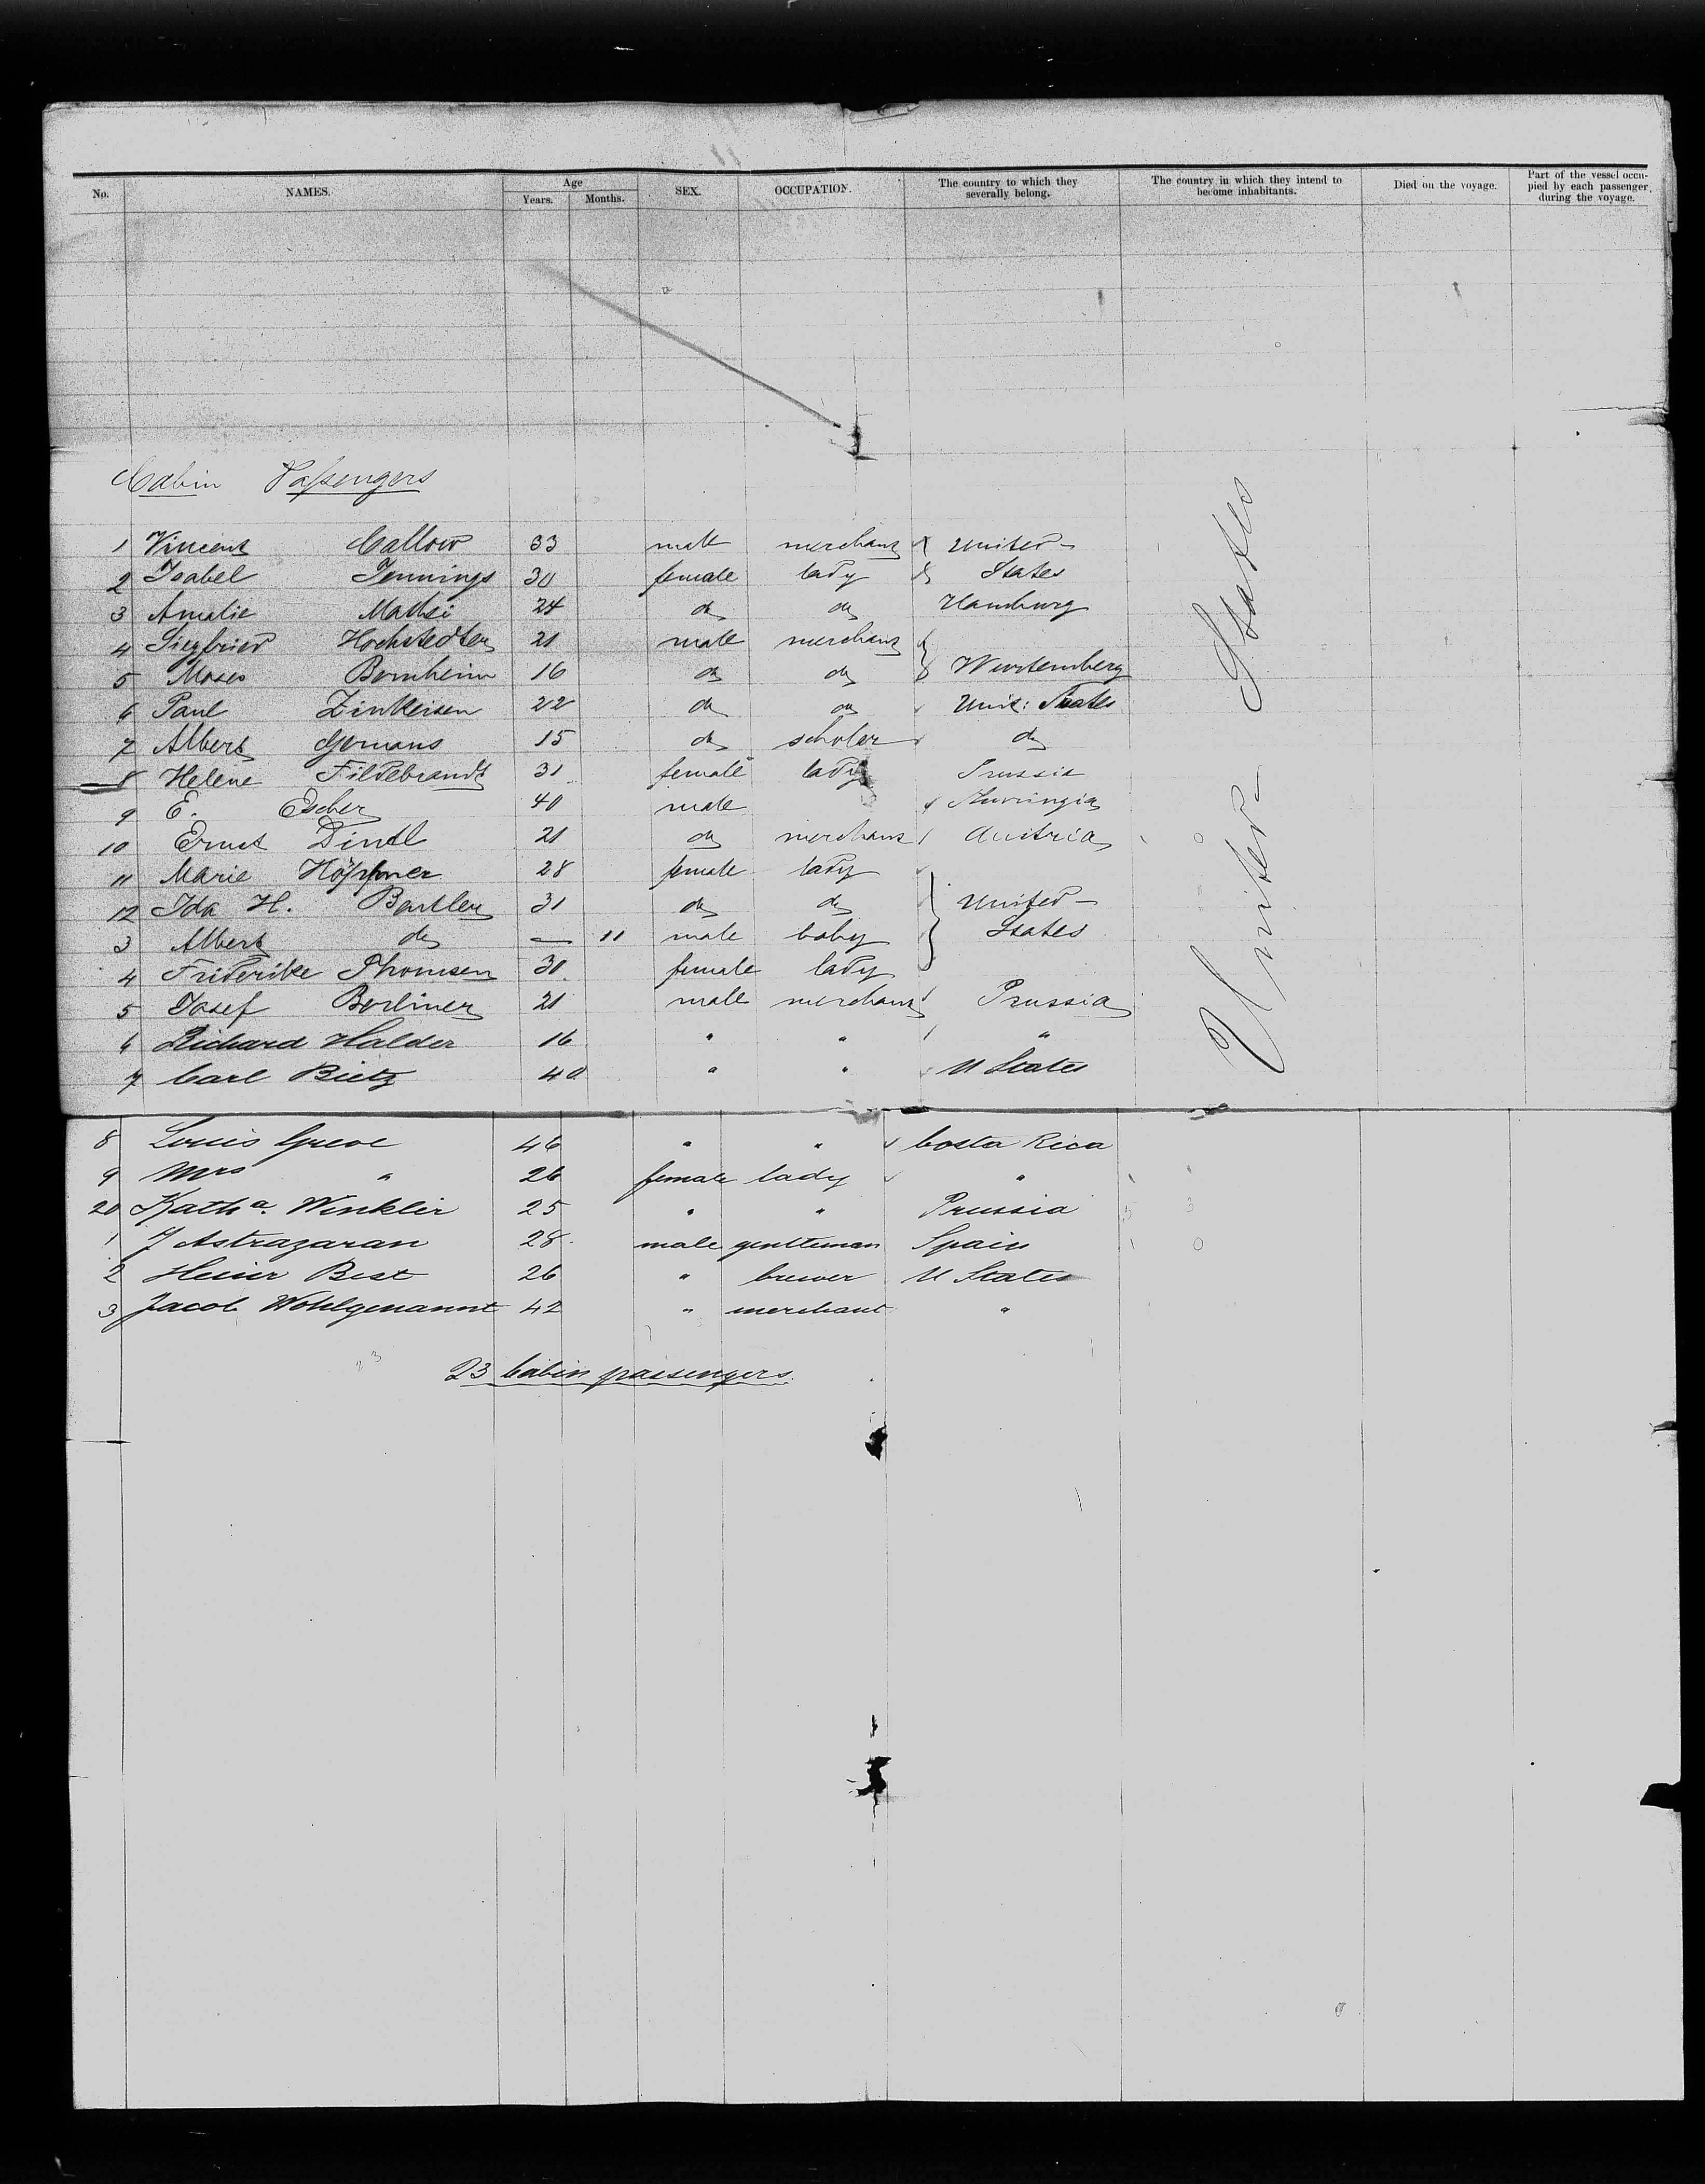 No. NAMES. Age Years. Months. SEX. OCCUPATION. The country to which they severally belong. The country in which they intend to become inhabitants. Died on the voyage. Part of the vessel occupied by each passenger, during the voyage.
Cabin Passengers
1 Vincent Callow 33 male merchant United
2 Isabel Jennings 30 female lady States
3 Amalie 24 do do Hamburg
4 Siegfried Hochstedter 21 male merchant
5 Moses Bernheim 16 do do Wurtemberg
6 Paul Zinkeisen 22 do do Unit: States
7 Albert Gernans 15 do scholar do
8 Helene Fildebrandt 31 female lady Prussia
9 E. Escher 40 male Thuringia
10 Ernst Dindl 21 do merchant Austria
11 Marie Höpfner 28 female lady
12 Ida H. Bartler 31 do do United
3 Albert do — 11 male baby States
4 Friderike Thomsen 30 female lady
5 Josef Berliner 21 male merchant Prussia
6 Richard Halder 16 " " "
7 Carl Bietz 40 " " U States
United States
8 Louis Greve 46 " " Costa Rica
9 Mrs " 26 female lady "
20 Katha Winkler 25 " " Prussia
1 J Astrazaran 28 male gentleman Spain
2 Heinr Best 26 " brewer U States
3 Jacob Wohlgenannt 42 " merchant "
23 Cabin passengers